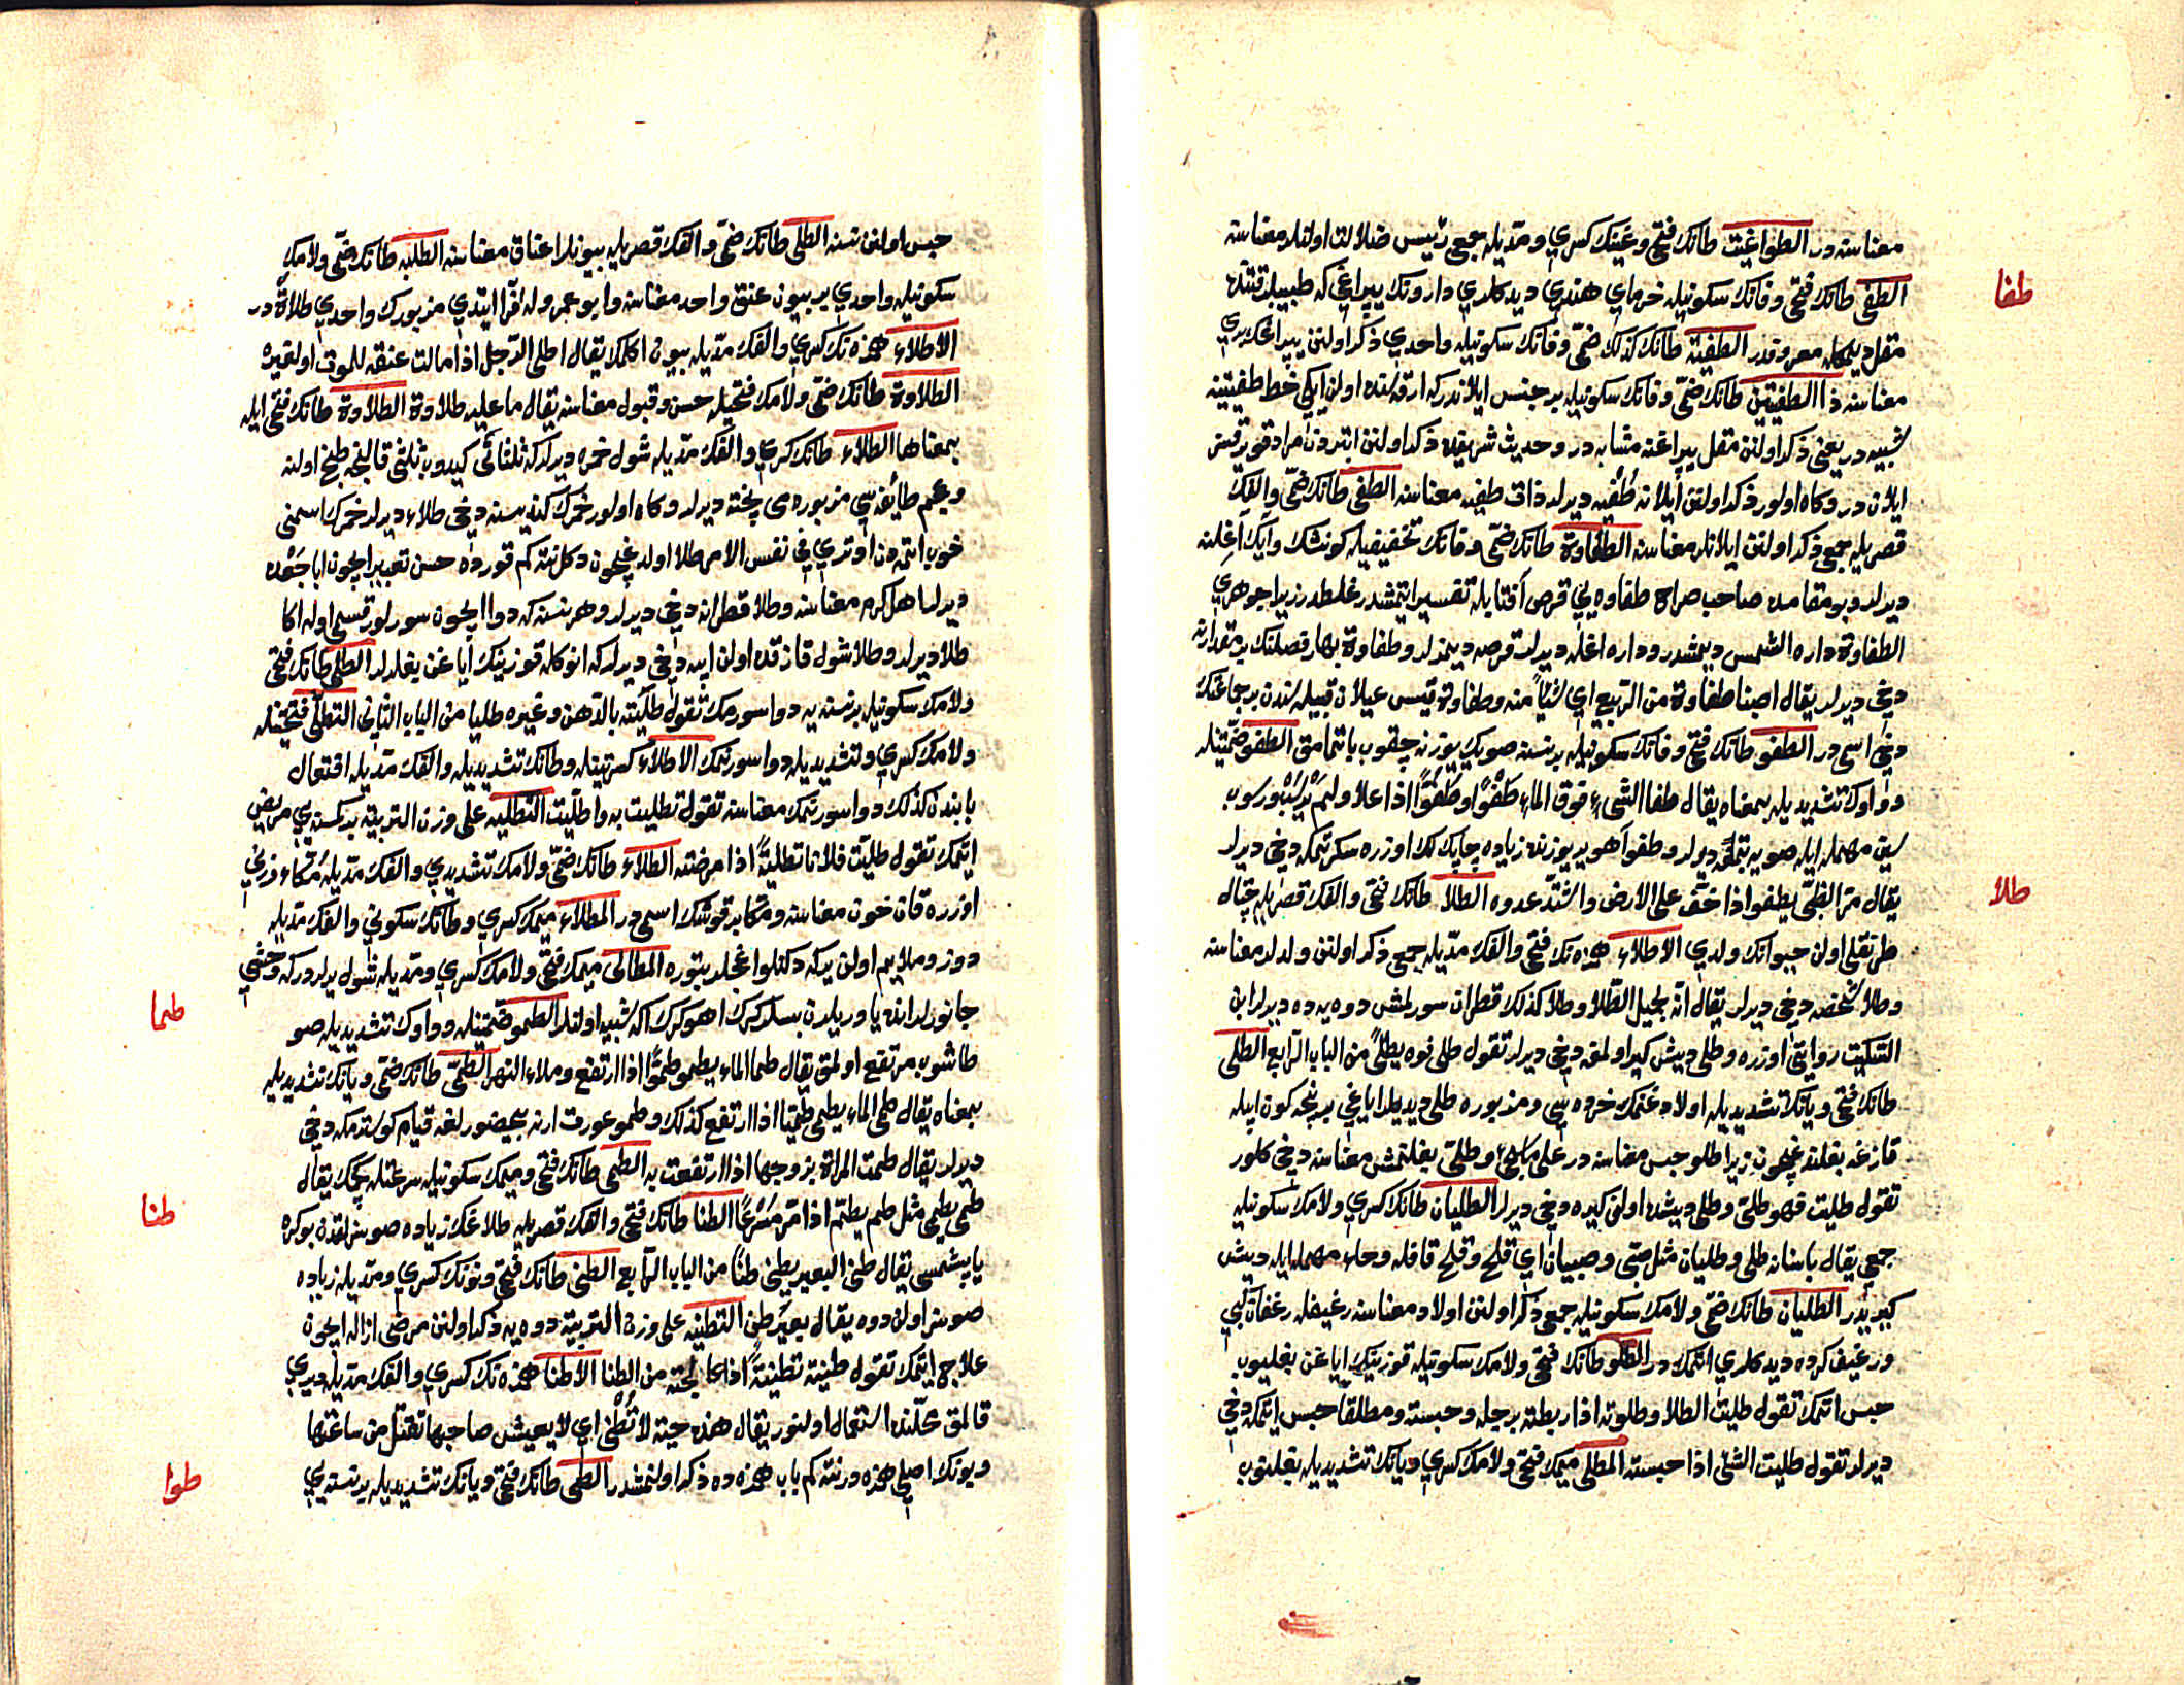 معناسنه در الطواغيت طانك فتحى وغينك كسرى ومديله جمع رئيس ضلالت اولنلر معناسنه
طفا
الطفى طانك فتحى وفانك سكونيله خرماى هندى ديدكلرى دارونك يپراغى كه طبيبلر قتنده
مقل ديمكله معروفدر الطفية طانك كذلك ضمى وفانك سكونيله واحدى ذكر اولنن يپراغك برى
معناسنه ذا الطفيتين طانك ضمى وفانك سكونيله بر جنس ايلاندركه ارقه سنده اولن ايكى خط طفيتينه
شبيه در يعنى ذكر اولنن مقل يپراغنه مشابه در وحديث شريفده ذكر اولنن ابتردن مراد قويرقسز
ايلان در وكاه اولور ذكر اولنن ايلانه طفيه ديرلر ذات طفيه معناسنه الطفى طانك ضمى والفك
قصريله جمع ذكر اولنن ايلانلر معناسنه الطفاوة طانك ضمى وفانك تخفيفيله كونشك وآيك آغلنه
ديرلر وبو مقامده صاحب صراح طفاوه يى قرص آفتابله تفسير ايتمشدر غلطدر زيرا جوهرى
الطفاوة داره الشمس ديمشدر وداره اغله ديرلر قرصه ديمزلر وطفاوة بهار فصلنك بر مقدارنه
دخى ديرلر يقال اصبنا طفاوة من الربيع اى شيئا منه وطفاوة قيس عيلان قبيله سندن بر جماعتك
دخى اسمى در الطفو طانك فتحى وفانك سكونيله بر نسنه صويك يوزنه چقوب باتمامق الطفو ضمتينله
وواوك تشديديله بمعناه يقال طفا الشىء فوق الماء طفوا وطفوا اذا علا ولم يرسب ورسوب
سين مهمله ايله صويه بتمكه ديرلر وطفو اهو ير يوزنده زياده چابك لك اوزره سكرتمكه دخى ديرلر
طلا
يقال مر الظبى يطفو اذا خف على الارض واشتد عدوه الطلا طانك فتحى والفك قصريله چتال
طرنقلى اولن حيوانك ولدى الاطلاء همزه نك فتحى والفك مديله جمع ذكر اولنن ولدلر معناسنه
وطلا شخصه دخى ديرلر يقال انه لجميل الطلا وطلا كذلك قطران سورلمش دوه يه ده ديرلر ابن
السكيت روايتى اوزره وطلى ديش كيرلو اولمغه دخى ديرلر تقول طلى فوه يطلى من الباب الرابع الطلى
طانك فتحى ويانك تشديديله اولاد غنمك خرده سى ومزبوره طلى ديديلر اياغى بر نيچه كون ايپله
قازغه بغلنديغيچون زيرا طلو حبس معناسنه در وطلى بغلنمش معناسنه دخى كلور
تقول طليت فهو طلى وطلى ديشده اولن كيره دخى ديرلر الطليان طانك كسرى ولامك سكونيله
جمعى يقال باسنانه طلى وطليان مثل صبى وصبيان اى قلح وقلح قافله وحاء مهمله ايله ديش
كيريدر الطليان طانك ضمى ولامك سكونيله جمع ذكر اولنن اولاد معناسنه رغيفله رغفان كبى
ورغيف كرده ديدكلرى اتمك در الطلو طانك فتحى ولامك سكونيله قوزينك اياغن بغليوب
حبس اتمك تقول طليت الطلا وطلوته اذا ربطته برجله وحبسته ومطلقا حبس اتمكه دخى
ديرلر تقول طليت الشئ اذا حبسته المطلى ميمك فتحى ولامك كسرى ويانك تشديديله بغلنوب
حبس اولنن نسنه الطلى طانك ضمى والفك قصريله بيونلر اعناق معناسنه الطلية طانك ضمى ولامك
سكونيله واحدى بر بيون عنق واحد معناسنه وابو عمرو وله فرا ايتدى مزبورك واحدى طلاة در
الاطلاء همزه نك كسرى والفك مديله بيون اكلمك يقال اطلى الرجل اذا مالت عنقه للموت او لغيره
الطلاوة طانك ضمى ولامك فتحيله حسن وقبول معناسنه يقال ما عليه طلاوة الطلاوة طانك فتحى ايله
بمعناها الطلاء طانك كسرى والفك مديله شول خمره ديرلركه ثلثانى كيدوب ثلثى قالنجه طبخ اولنه
وعجم طايفه سى مزبوره مى پخته ديرلر وكاه اولور خمرك كنديسنه دخى طلاء ديرلر خمرك اسمنى
خوب ايتمه دن اوترى فى نفس الامر طلا اولديغيچون دكل نته كم قورده حسن تعبير ايچون ابا جعده
ديرلر اهل كرم معناسنه وطلا قطرانه دخى ديرلر وهر نسنه كه دوا ايچون سورلور قسمى اوله اكا
طلا ديرلر وطلا شول قازقده اولن ايپه دخى ديرلركه انوكله قوزينك اياغن بغلرلر الطلى طانك فتحى
ولامك سكونيله بر نسنه يه دوا سورمك تقول طليته بالدهن وغيره طليا من الباب الثانى التطلى فتحتينله
ولامك كسرى وتشديديله دوا سورنمك الاطلاء كسرتينله وطانك تشديديله والفك مديله افتعال
بابندن كذلك دوا سورنمك معناسنه تقول تطليت به واطليت التطليه على وزن التربية بر كسنه يى مريض
ايتمك تقول طليت فلانا تطلية اذا مرضته الطلاء طانك ضمى ولامك تشديدى والفك مديله مكاء وزنى
اوزره قان خون معناسنه ومكا بر قوشك اسمى در المطلاء ميمك كسرى وطانك سكونى والفك مديله
دوز وملايم اولن يركه دكنلو اغجلر بتوره المطالى ميمك فتحى ولامك كسرى ومديله شول يرلردركه وحشى
طما
جانورلر انده ياوريلرن بسلر كرك اهو كرك اكه شبيه اولنلر الطمو ضمتينله وواوك تشديديله صو
طاشوب مرتفع اولمق يقال طما الماء يطمو طموا اذا ارتفع وملاء النهر الطمى طانك ضمى ويانك تشديديله
بمعناه يقال طمى الماء يطمى طميا اذا ارتفع كذلك وطمو عورت ارنه بيحضورلغه قيام كوسترمكه دخى
ديرلر يقال طمت المراة بزوجها اذا ارتفعت به الطمى طانك فتحى وميمك سكونيله سرعتله كچمك يقال
طنا
طمى يطمى مثل طم يطم اذا مر مسرعا الطنا طانك فتحى والفك قصريله طلاغك زياده صوسزلقدن بوكره
يا پشمسى يقال طنى البعير يطنى طنا من الباب الرابع الطنى طانك فتحى ونونك كسرى ومديله زياده
صوسز اولن دوه يقال بعير طن التطنيه على وزن التربية دوه يه ذكر اولنن مرضى ازاله ايچون
علاج ايتمك تقول طنيته تطنية اذا عالجته من الطنا الاطنا همزه نك كسرى والفك مديله ديرى
قالمق محلنده استعمال اولنور يقال هذه حية لا تطنى اى لا يعيش صاحبها تقتل من ساعتها
طوا
وبونك اصلى همزه در نته كم باب همزه ده ذكر اولنمشدر الطى طانك فتحى ويانك تشديديله بر نسنه يى